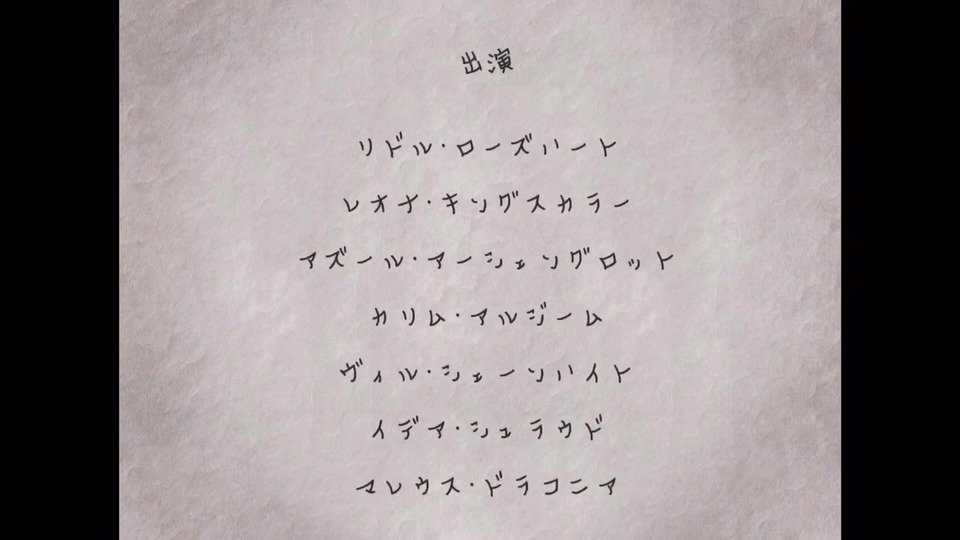 出演
リドル・ローズハート
レオナ・キングスカラー
アズール・アーシェングロット
カリム・アルジーム
ヴィル・シェーンハイト
イデア・シュラウド
マレウス・ドラコニア